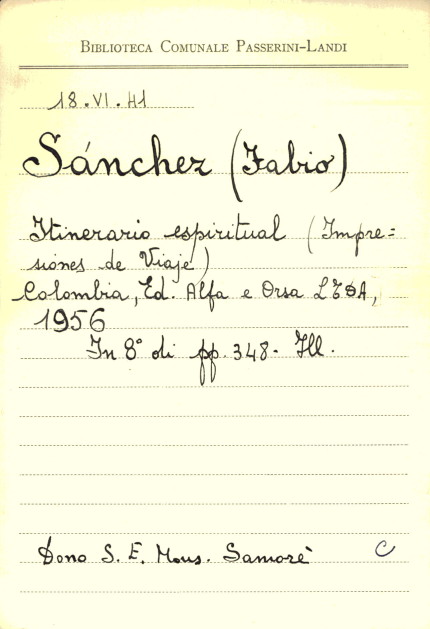 BIBLIOTECA COMUNALE PASSERINI-LANDI
18.VI.41
Sánchez (Fabio)
Itinerario espiritual (Impre=
siones de Viaje)
Colombia, Ed. Alfa e Orsa LTDA,
1956
In 8° di pp. 348. Ill.
Dono S. E. Mons. Samorè C